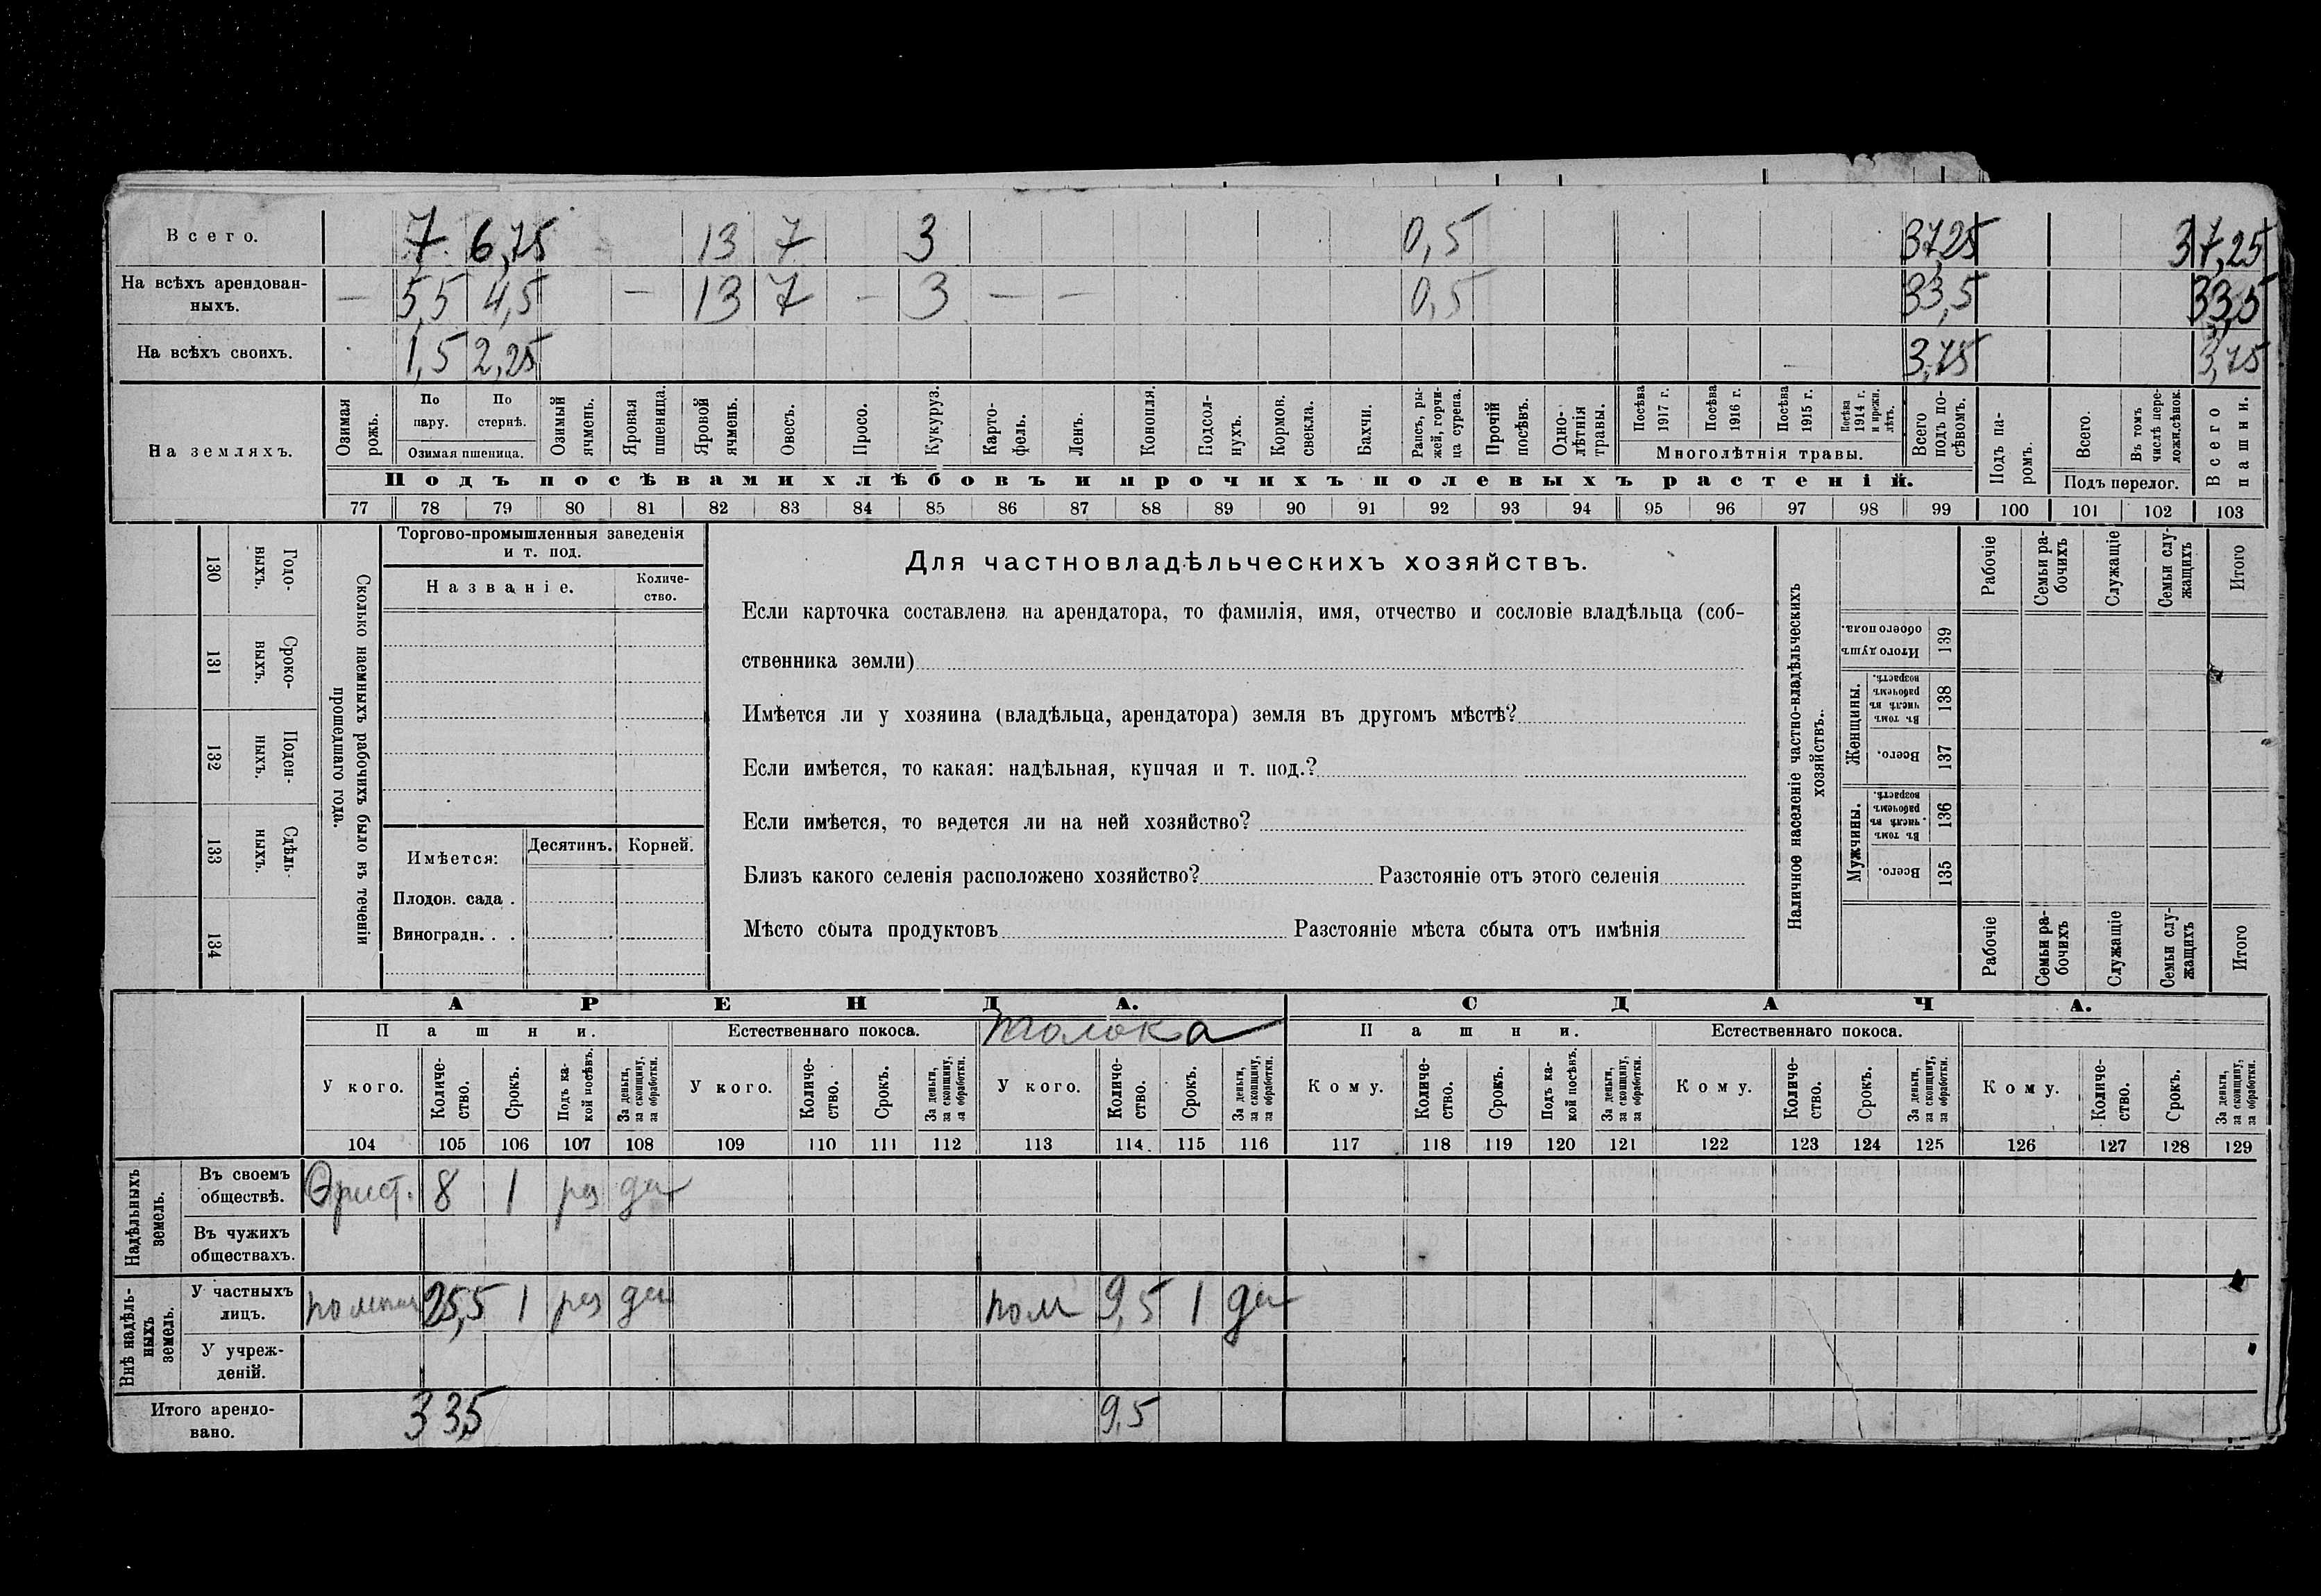 Всего. 7 6,75 13 7 3 0,5 37,25 37,25
На всѣхъ арендован-
ныхъ. — 5,5 4,5 — 13 7 — 3 — — 0,5 33,5 33,5
На всѣхъ своихъ. 1,5 2,25 3,75 3,75
На земляхъ.
Озимая рожь.
По пару.
По стернѣ.
Озимая пшеница.
Озимый ячмень.
Яровая пшеница.
Яровой ячмень.
Овесъ.
Просо.
Кукуруз.
Карто-
фель.
Ленъ.
Конопля.
Подсол-
нухъ.
Кормов.
свекла.
Бахчи.
Рапсъ, ры-
жей, горчи-
ца сурепа.
Прочій
посѣвъ.
Одно-
лѣтнія
травы.
Посѣва
1917 г.
Посѣва
1916 г.
Посѣва
1915 г.
Посѣва
1914 г.
и прежн.
лѣтъ.
Многолѣтнія травы.
Всего
подъ по-
сѣвомъ.
Подъ па-
ромъ.
Всего.
Въ томъ
числѣ пере-
ложн.сѣнок.
Подъ перелог.
Всего
пашни.
Подъ посѣвами хлѣбовъ и прочихъ полевыхъ растеній.
77 78 79 80 81 82 83 84 85 86 87 88 89 90 91 92 93 94 95 96 97 98 99 100 101 102 103
130 Годо-
выхъ.
131 Сроко-
выхъ.
132 Поден-
ныхъ.
133 Сдѣль-
ныхъ.
134
Сколько наемныхъ рабочихъ было въ теченіи
прошедшаго года.
Торгово-промышленныя заведенія
и т. под.
Названіе.
Количе-
ство.
Имѣется:
Десятинъ. Корней.
Плодов. сада .
Виноградн. . .
Для частновладѣльческихъ хозяйствъ.
Если карточка составлена на арендатора, то фамилія, имя, отчество и сословіе владѣльца (соб-
ственника земли)
Имѣется ли у хозяина (владѣльца, арендатора) земля въ другомъ мѣстѣ?
Если имѣется, то какая: надѣльная, купчая и т. под.?
Если имѣется, то ведется ли на ней хозяйство?
Близъ какого селенія расположено хозяйство? Разстояніе отъ этого селенія
Мѣсто сбыта продуктовъ Разстояніе мѣста сбыта отъ имѣнія
Наличное населеніе частно-владѣльческихъ
хозяйствъ.
Рабочіе
Семьи ра-
бочихъ
Служащіе
Семьи слу-
жащихъ
Итого
Итого душъ
обоего пола.
139
Женщины.
Въ томъ
числѣ въ
рабочемъ
возрастѣ.
138
Всего.
137
Мужчины.
Въ томъ
числѣ въ
рабочемъ
возрастѣ.
136
Всего.
135
Рабочіе
Семьи ра-
бочихъ
Служащіе
Семьи слу-
жащихъ
Итого
АРЕНДА. СДАЧА.
Пашни. Естественнаго покоса. толока Пашни. Естественнаго покоса.
У кого.
Количе-
ство.
Срокъ.
Подъ ка-
кой посѣвъ.
За деньги,
за скопщину,
за обработки.
У кого.
Количе-
ство.
Срокъ.
За деньги,
за скопщину,
за обработки.
У кого.
Количе-
ство.
Срокъ.
За деньги,
за скопщину,
за обработки.
Кому.
Количе-
ство.
Срокъ.
Подъ ка-
кой посѣвъ.
За деньги,
за скопщину,
за обработки.
Кому.
Количе-
ство.
Срокъ.
За деньги,
за скопщину,
за обработки.
Кому.
Количе-
ство.
Срокъ.
За деньги,
за скопщину,
за обработки.
104 105 106 107 108 109 110 111 112 113 114. 115 116 117 118 119 120 121 122 123 124 125 126 127 128 129
Надѣльныхъ
земель.
Въ своемъ
обществѣ. 8 1 раз де
Въ чужихъ
обществахъ.
Внѣ надѣль-
ныхъ
земель.
У частныхъ
лицъ. 25,5 1 раз де пом 9,5 1 де
У учреж-
деній.
Итого арендо-
вано. 33,5 9,5